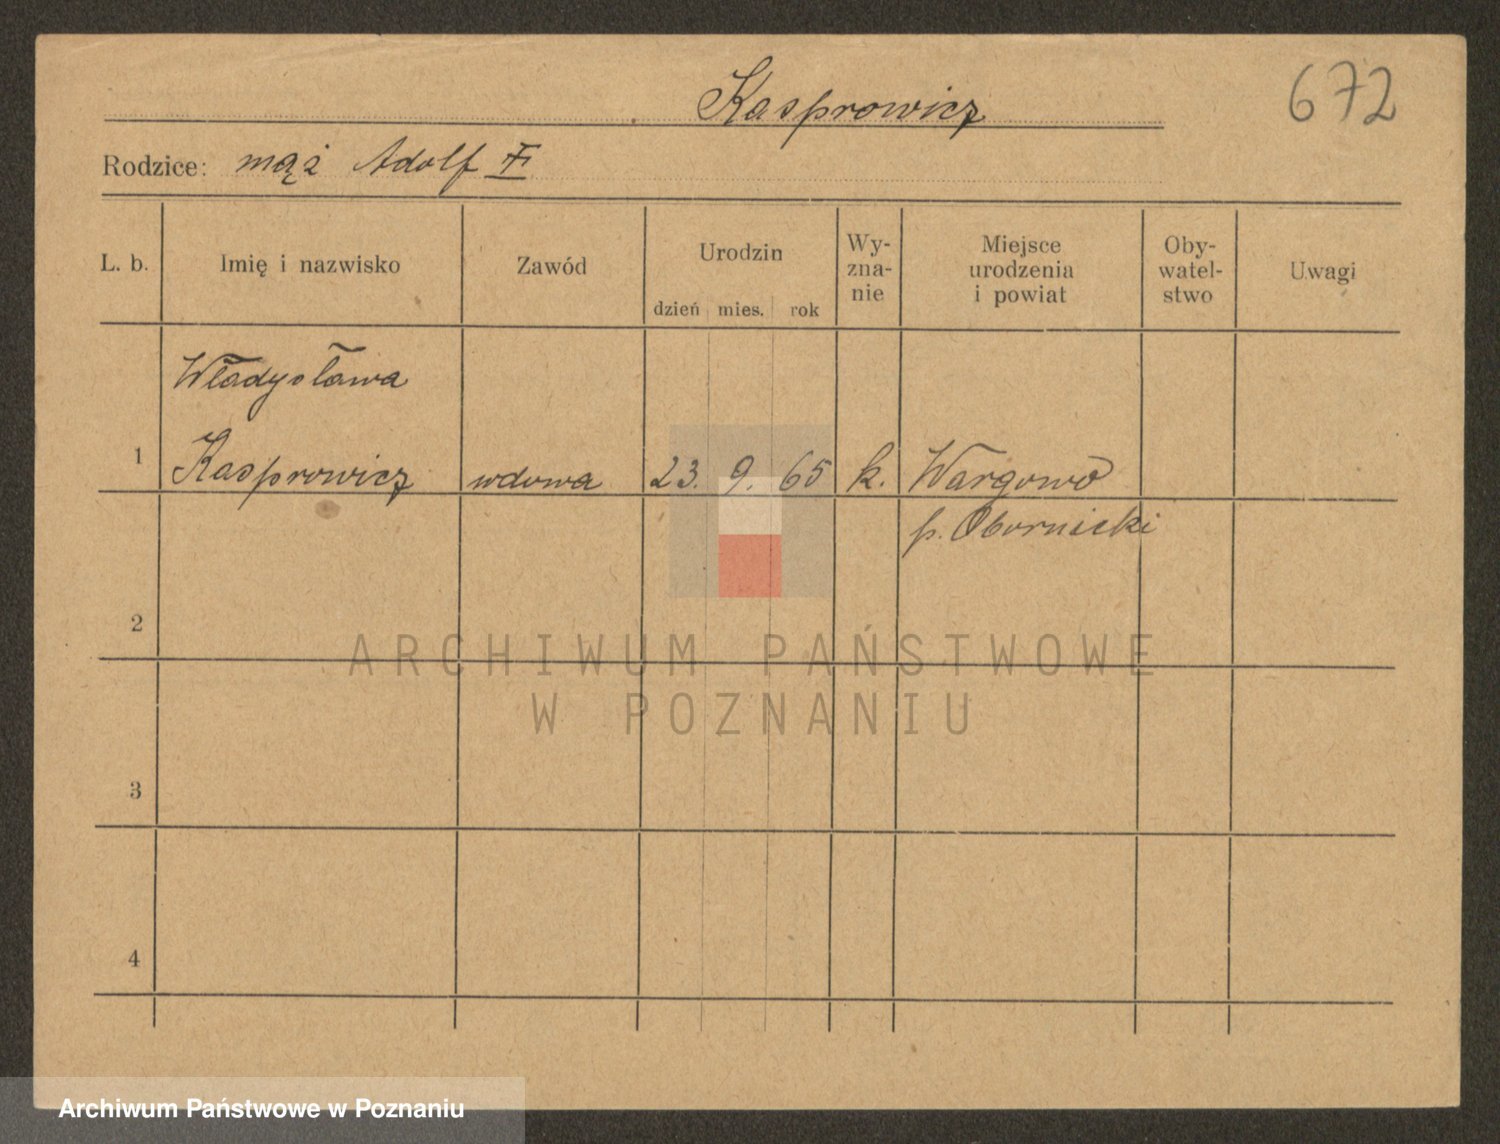 Kasprowicz
672
Rodzice: mąż Adolf
L. b.
Imię i nazwisko
Zawód
Urodzin
dzień mies. rok
Wy-
zna-
nie
Miejsce
urodzenia
i powiat
Oby-
watel-
stwo
Uwagi
Władysława
1 Kasprowicz wdowa 23. 9. 65 k. Wargowo
p. Obornicki
2
ARCHIWUM PAŃSTWOWE
W POZNANIU
3
4
Archiwum Państwowe w Poznaniu